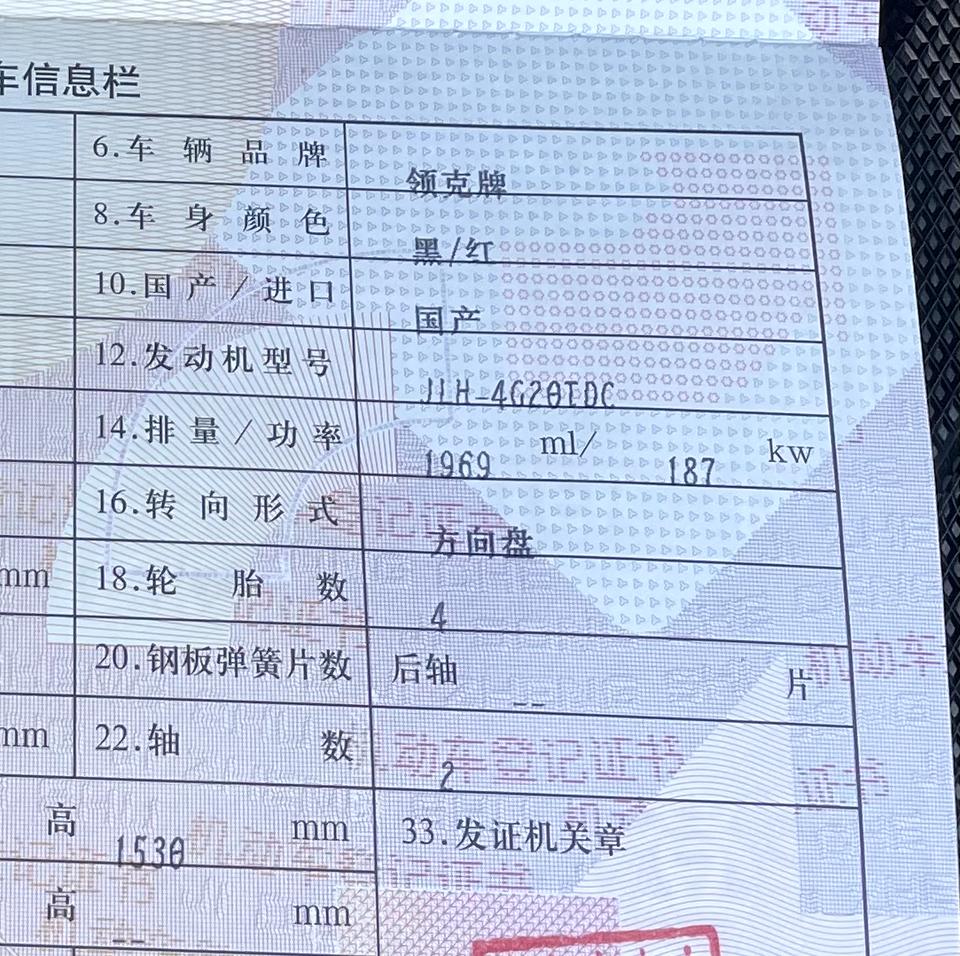 车信息栏
6.车辆品牌 领克牌
8.车身颜色 黑/红
10.国产/进口 国产
12.发动机型号 JLH-4G20TDC
14.排量/功率 1969 ml/ 187 kw
16.转向形式 方向盘
mm 18.轮胎数 4
20.钢板弹簧片数 后轴 -- 片
mm 22.轴数 2
高 1530 mm 33.发证机关章
高 -- mm